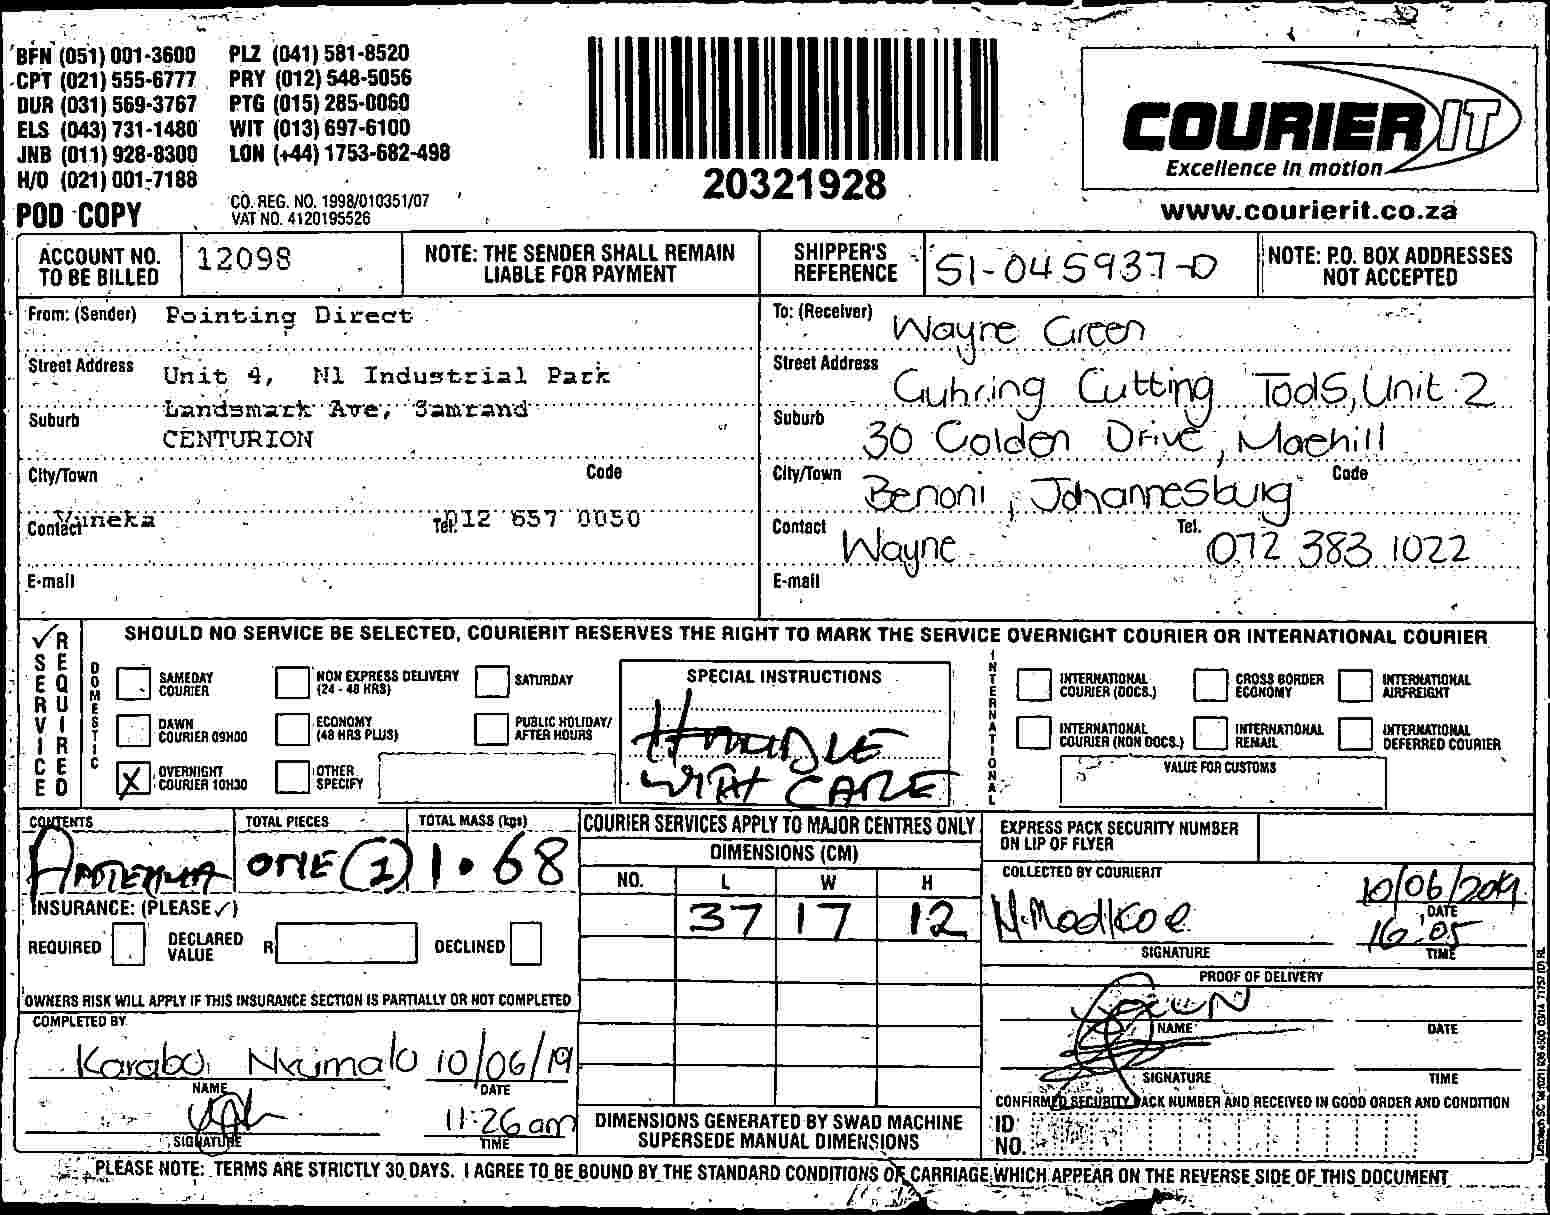 BFN (051) 001-3600 PLZ (041) 581-8520
CPT (021) 555-6777 PRY (012) 548-5056
DUR (031) 569-3767 PTG (015) 285-0060
ELS (043) 731-1480 WIT (013) 697-6100
JNB (011) 928-8300 LON (+44) 1753-682-498
H/O (021) 001-7188
CO. REG. NO. 1998/010351/07
VAT NO. 4120195526
POD COPY
20321928
COURIER IT
Excellence in motion
www.courierit.co.za
ACCOUNT NO. TO BE BILLED 12098
NOTE: THE SENDER SHALL REMAIN LIABLE FOR PAYMENT
SHIPPER'S REFERENCE SI-045937-D
NOTE: P.O. BOX ADDRESSES NOT ACCEPTED
From: (Sender) Pointing Direct
Street Address Unit 4, N1 Industrial Park
Suburb Landsmark Ave, Samrand
CENTURION
City/Town Code
Contact Yuneka Tel. 012 657 0050
E-mail
To: (Receiver) Wayne Green
Street Address Guhring Cutting Tools, Unit 2
Suburb 30 Golden Drive, Morehill
City/Town Benoni, Johannesburg Code
Contact Wayne Tel. 072 383 1022
E-mail
SERVICE REQUIRED
SHOULD NO SERVICE BE SELECTED, COURIERIT RESERVES THE RIGHT TO MARK THE SERVICE OVERNIGHT COURIER OR INTERNATIONAL COURIER
DOMESTIC
SAMEDAY COURIER
NON EXPRESS DELIVERY (24 - 48 HRS)
SATURDAY
DAWN COURIER 09H00
ECONOMY (48 HRS PLUS)
PUBLIC HOLIDAY/ AFTER HOURS
X OVERNIGHT COURIER 10H30
OTHER SPECIFY
SPECIAL INSTRUCTIONS
HANDLE
WITH CARE
INTERNATIONAL
INTERNATIONAL COURIER (DOCS.)
CROSS BORDER ECONOMY
INTERNATIONAL AIRFREIGHT
INTERNATIONAL COURIER (NON DOCS.)
INTERNATIONAL REMAIL
INTERNATIONAL DEFERRED COURIER
VALUE FOR CUSTOMS
CONTENTS TOTAL PIECES TOTAL MASS (kgs)
Antenna ONE (1) 1.68
INSURANCE: (PLEASE ✓)
REQUIRED DECLARED VALUE R DECLINED
OWNERS RISK WILL APPLY IF THIS INSURANCE SECTION IS PARTIALLY OR NOT COMPLETED
COMPLETED BY
Karabo Nkumalo 10/06/19
NAME DATE
11:26 am
SIGNATURE TIME
COURIER SERVICES APPLY TO MAJOR CENTRES ONLY
DIMENSIONS (CM)
NO. L W H
37 17 12
DIMENSIONS GENERATED BY SWAD MACHINE SUPERSEDE MANUAL DIMENSIONS
EXPRESS PACK SECURITY NUMBER ON LIP OF FLYER
COLLECTED BY COURIERIT
10/06/2019
DATE
16:05
SIGNATURE TIME
PROOF OF DELIVERY
NAME DATE
SIGNATURE TIME
CONFIRMED SECURITY PACK NUMBER AND RECEIVED IN GOOD ORDER AND CONDITION
ID NO.
PLEASE NOTE: TERMS ARE STRICTLY 30 DAYS. I AGREE TO BE BOUND BY THE STANDARD CONDITIONS OF CARRIAGE WHICH APPEAR ON THE REVERSE SIDE OF THIS DOCUMENT